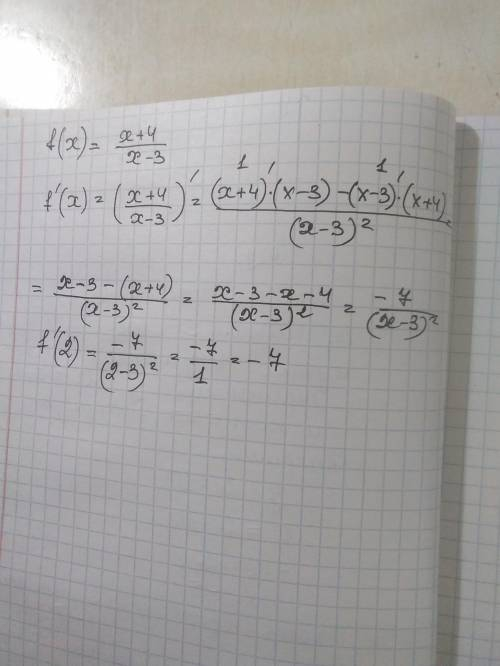 f(x) = (x+4)/(x-3)
f'(x) = ((x+4)/(x-3))' = ((x+4)'·(x-3) - (x-3)'·(x+4))/(x-3)²
1 1
= (x-3-(x+4))/(x-3)² = (x-3-x-4)/(x-3)² = -7/(x-3)²
f'(2) = -7/(2-3)² = -7/1 = -7